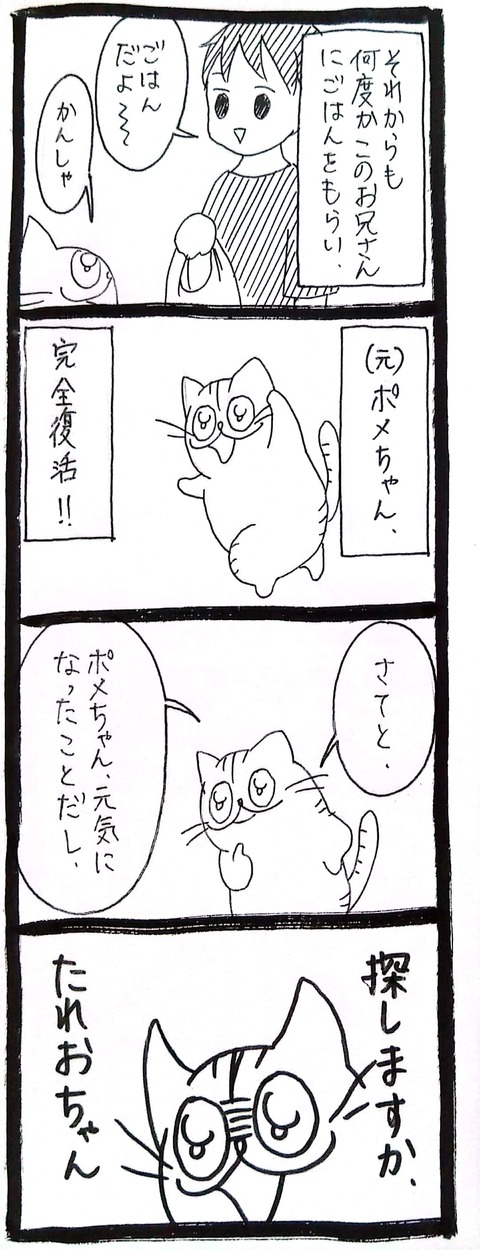 それからも
何度かこのお兄さん
にごはんをもらい、
ごはん
だよ〜〜
かんしゃ
(元)ポメちゃん、
完全復活!!
さてと、
ポメちゃん、元気に
なったことだし、
探しますか、
たれおちゃん